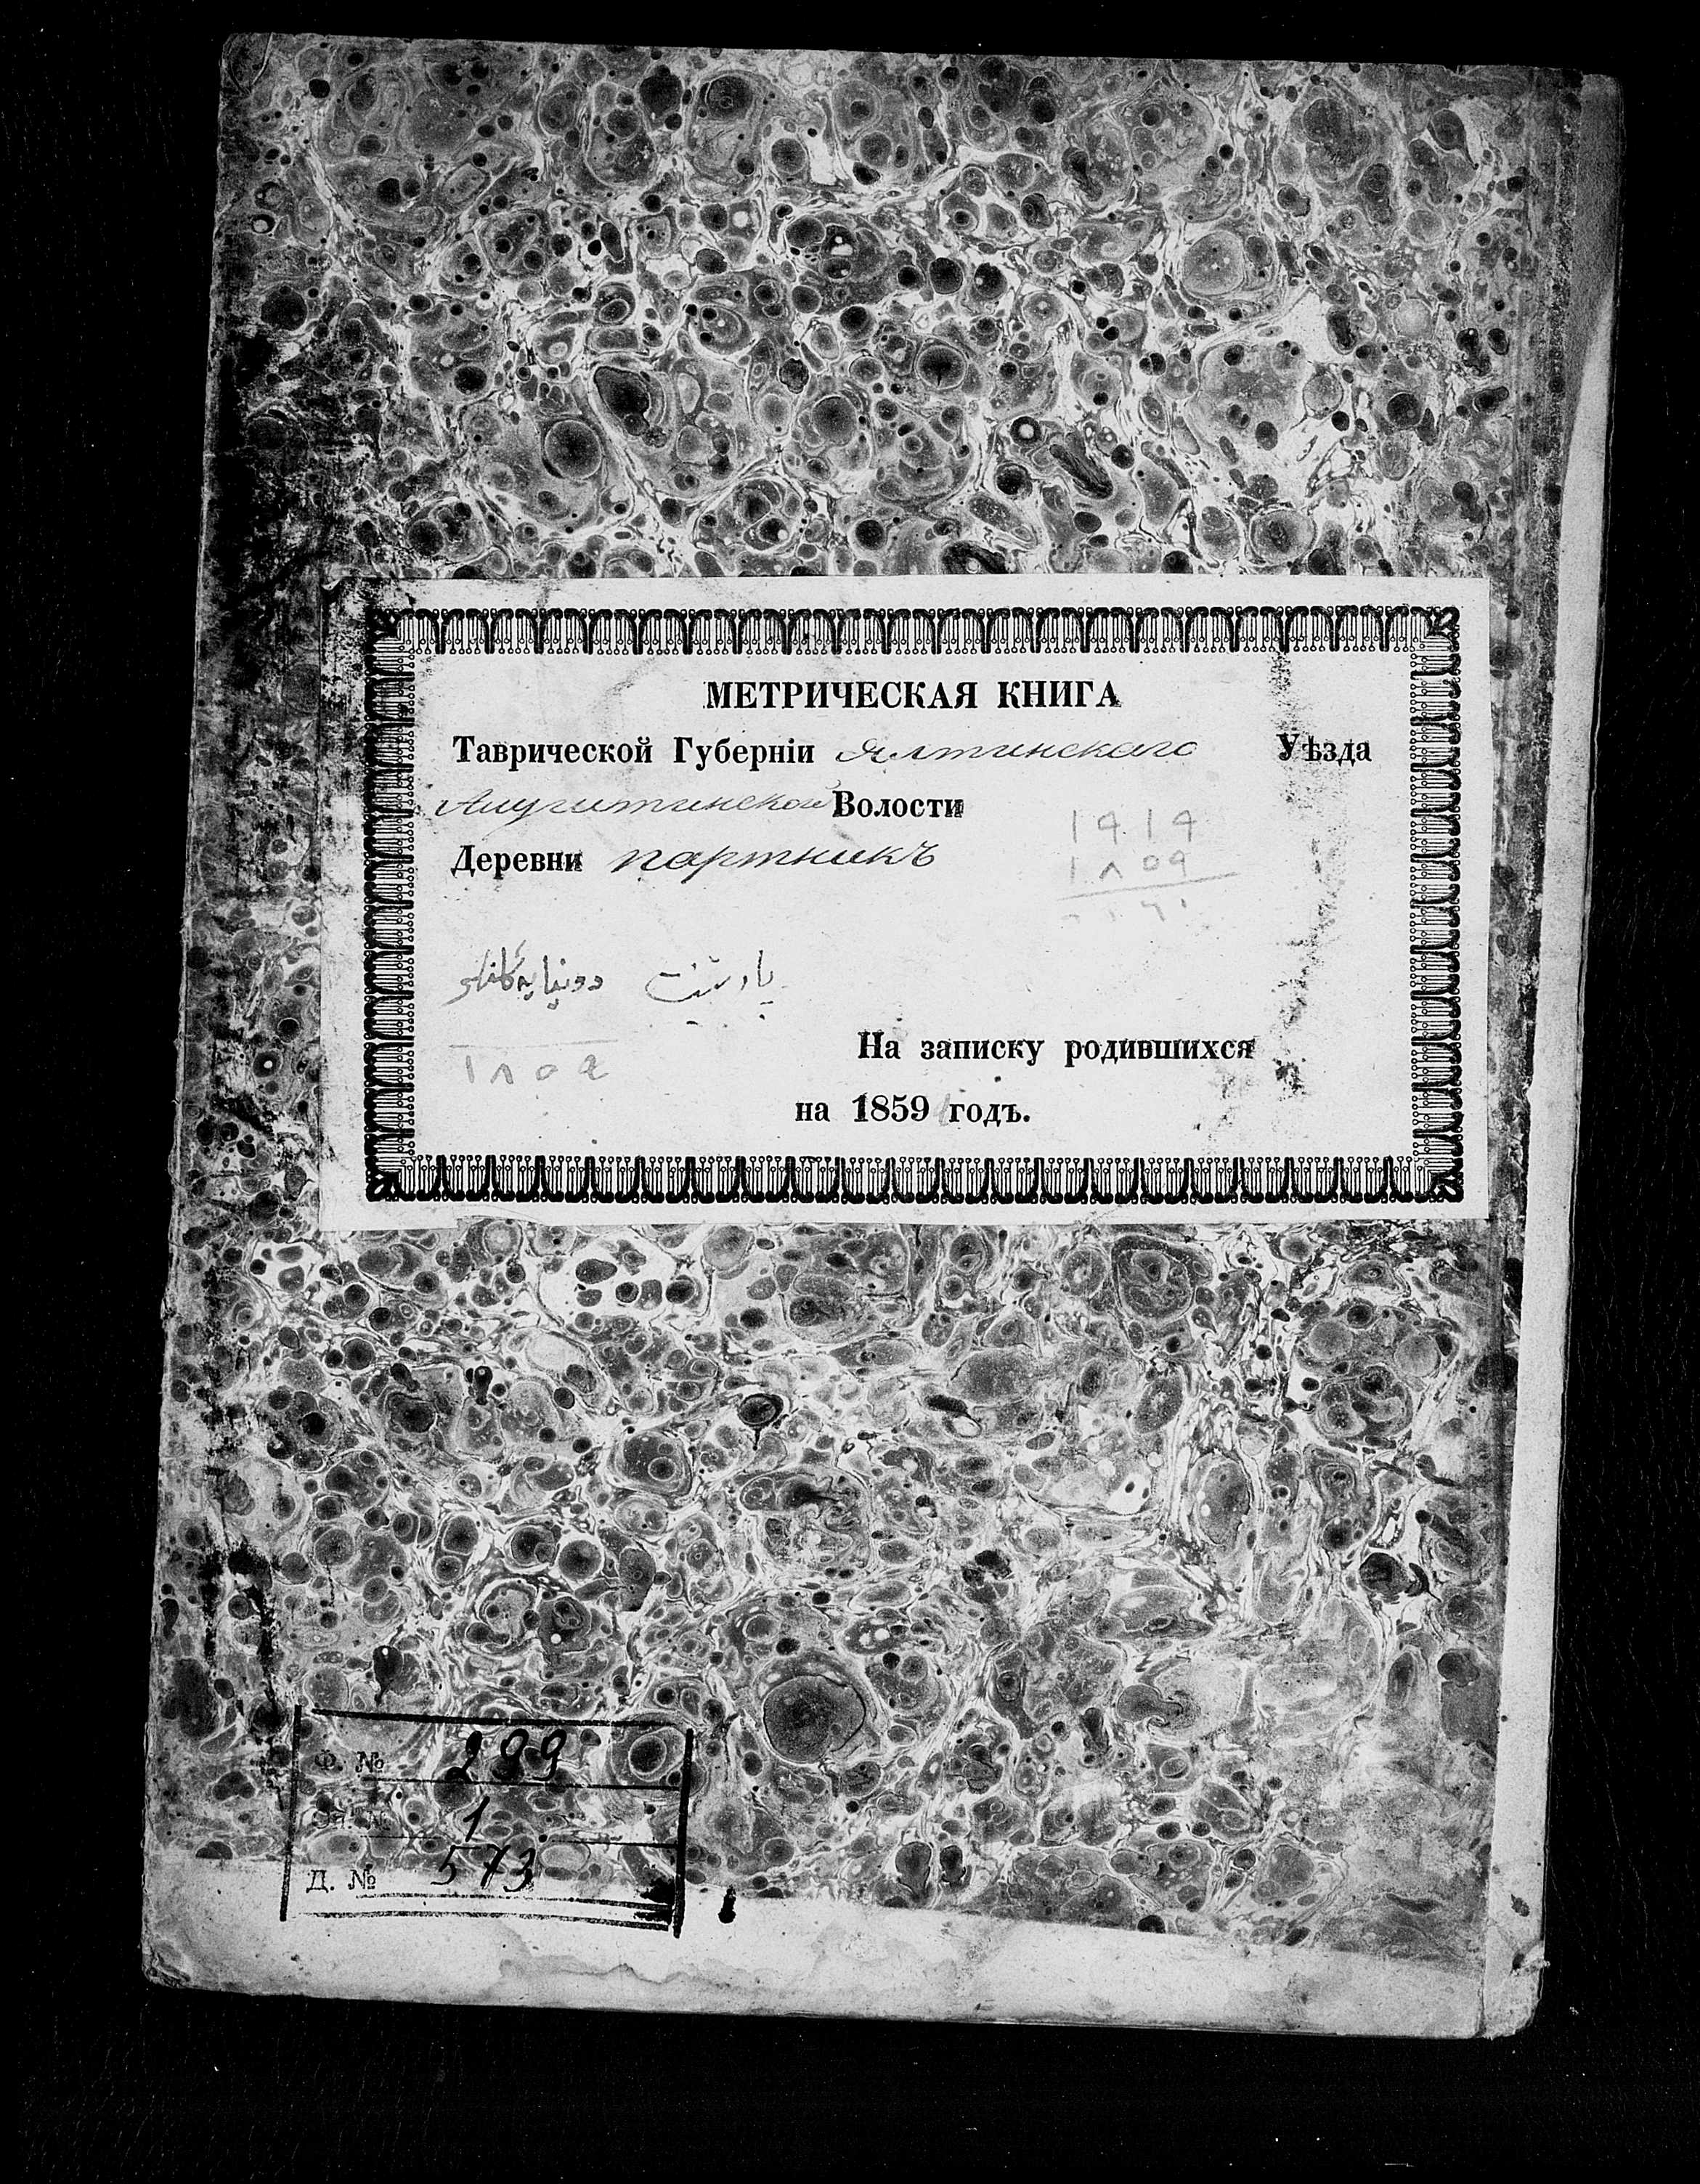 МЕТРИЧЕСКАЯ КНИГА
Таврической Губерніи Ялтинскаго Уѣзда
Алуштинской Волости
Деревни партникъ
1919
1859
پارتنت
١٨٥٩
На записку родившихся
на 1859 годъ.
Ф. № 299
Оп. № 1
Д. № 573